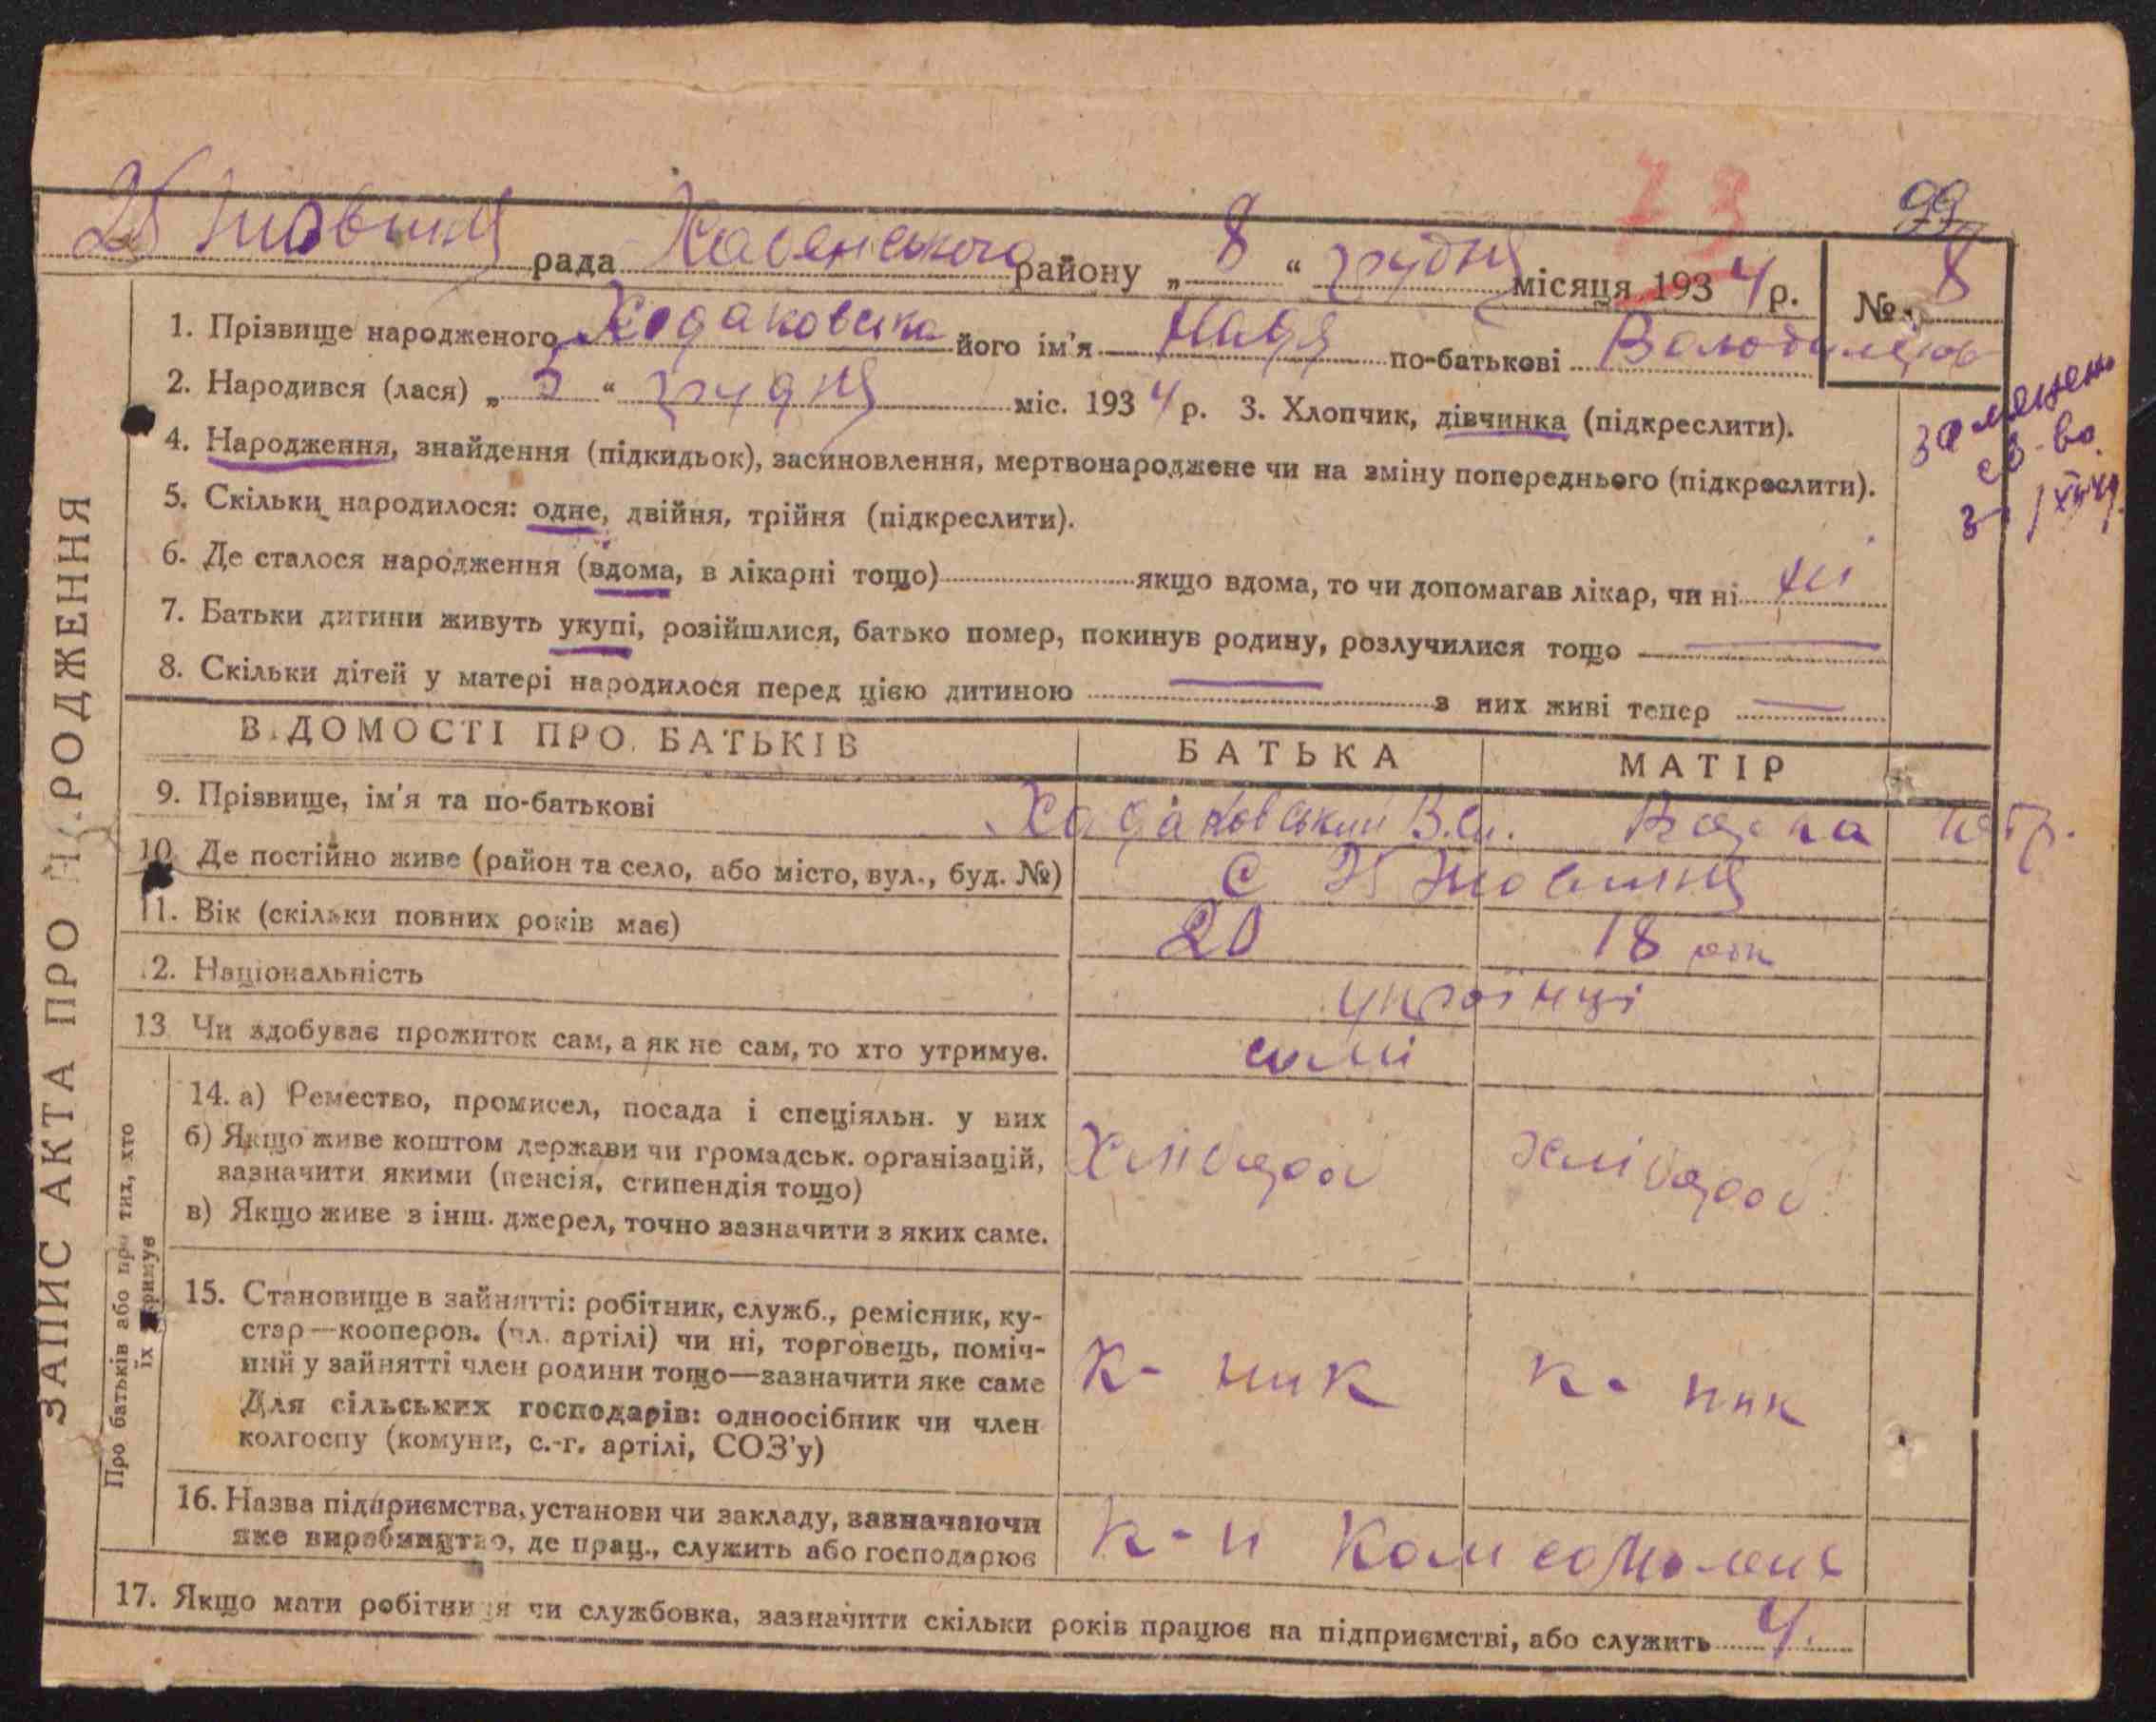 73
99
рада Хабенського району „ 8 “ грудня місяця 1934 р. № 8
1. Прізвище народженого Ходаковська його ім'я Надя по-батькові
2. Народився (лася) „ 5 “ грудня міс. 1934 р. 3. Хлопчик, дівчинка (підкреслити).
4. Народження, знайдення (підкидьок), засиновлення, мертвонароджене чи на зміну попереднього (підкреслити).
5. Скільки народилося: одне, двійня, трійня (підкреслити).
6. Де сталося народження (вдома, в лікарні тощо) якщо вдома, то чи допомагав лікар, чи ні ні
7. Батьки дитини живуть укупі, розійшлися, батько помер, покинув родину, розлучилися тощо —
8. Скільки дітей у матері народилося перед цією дитиною — з них живі тепер —
ЗАПИС АКТА ПРО НАРОДЖЕННЯ
ВІДОМОСТІ ПРО БАТЬКІВ БАТЬКА МАТІР
9. Прізвище, ім'я та по-батькові Ходаковський
10. Де постійно живе (район та село, або місто, вул., буд. №) с
11. Вік (скільки повних років має) 20 18
12. Національність українці
13. Чи здобуває прожиток сам, а як не сам, то хто утримує. самі
Про батьків або про тих, хто
їх утримує
14. а) Ремество, промисел, посада і спеціяльн. у них
б) Якщо живе коштом держави чи громадськ. організацій,
зазначити якими (пенсія, стипендія тощо) хлібороб хлібороб
в) Якщо живе з інш. джерел, точно зазначити з яких саме.
15. Становище в зайнятті: робітник, служб., ремісник, ку-
стар—кооперов. (чл. артілі) чи ні, торговець, поміч-
ний у зайнятті член родини тощо—зазначити яке саме к-ник к-ник
Для сільських господарів: одноосібник чи член
колгоспу (комуни, с.-г. артілі, СОЗ'у)
16. Назва підприємства, установи чи закладу, зазначаючи
яке виробництво, де прац., служить або господарює
17. Якщо мати робітниця чи службовка, зазначити скільки років працює на підприємстві, або служить